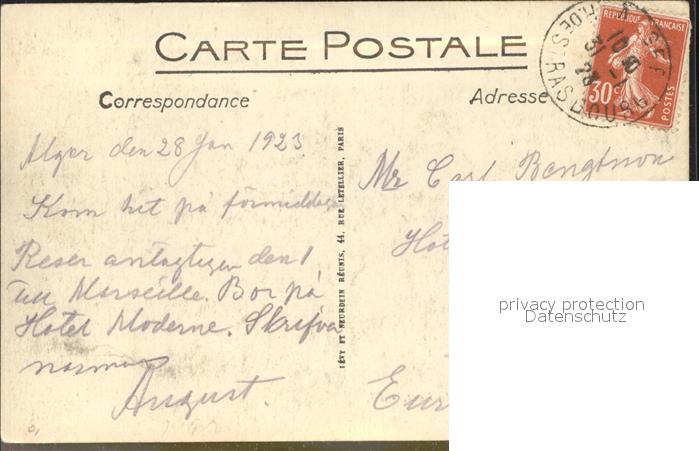 CARTE POSTALE
Correspondance
Adresse
RÉPUBLIQUE FRANÇAISE
30c
POSTES
R. DE STRASBOURG
Alger den 28 Jan 1923
Kom hit på förmiddag
Reser antagligen den 1
till Marseille. Bor på
Hotel Moderne. Skrifva
August.
LÉVY ET NEURDEIN RÉUNIS, 44, RUE LETELLIER, PARIS
Mr Carl Bengtsson
Hot
Eur
privacy protection
Datenschutz